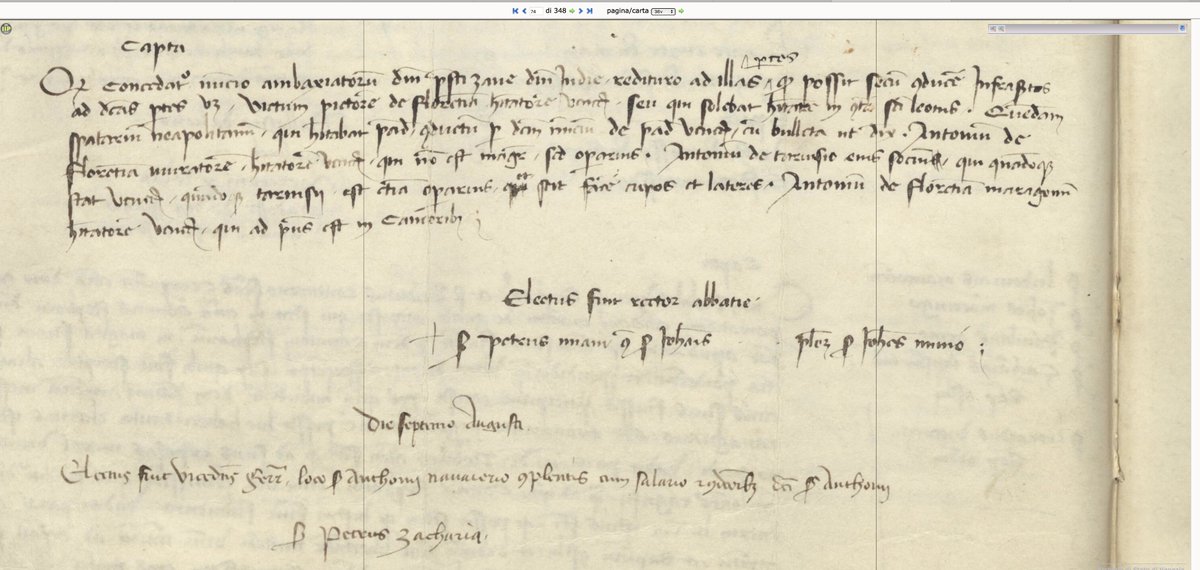 74 di 348 pagina/carta 36v
Capta
partes
Q concedatur nuncio ambaxiatorum dni presbiteri zane dni Indie redituro ad illas possit secum conducere Infrascriptos
ad dictas partes vz. victum pictorem de florentia habitatorem veneciis seu qui solebat habitare in contrata sci leonis. Quedam
spatarium neapolitanum qui habitabat padue conductum per dictum nuncium de padua venecias cum bulleta ut dixit. Antonium de
florentia muratorem habitatorem veneciis qui non est magister sed operarius. Antonium de tarvisio eius socium qui quandoque
stat veneciis quandoque tarvisii est etiam operarius et scit facere cupos et lateres. Antonium de florentia marangonum
habitatorem veneciis qui ad presens est in Cameribus
Electus fuit rector abbatie
S Petrus miani q S Johanis plez S Johes minio
Die septimo Augusti
Electus fuit vicedns ferr. loco S Anthonii navaierio complentis cum salario dci S Anthonii
S Petrus Zacharia